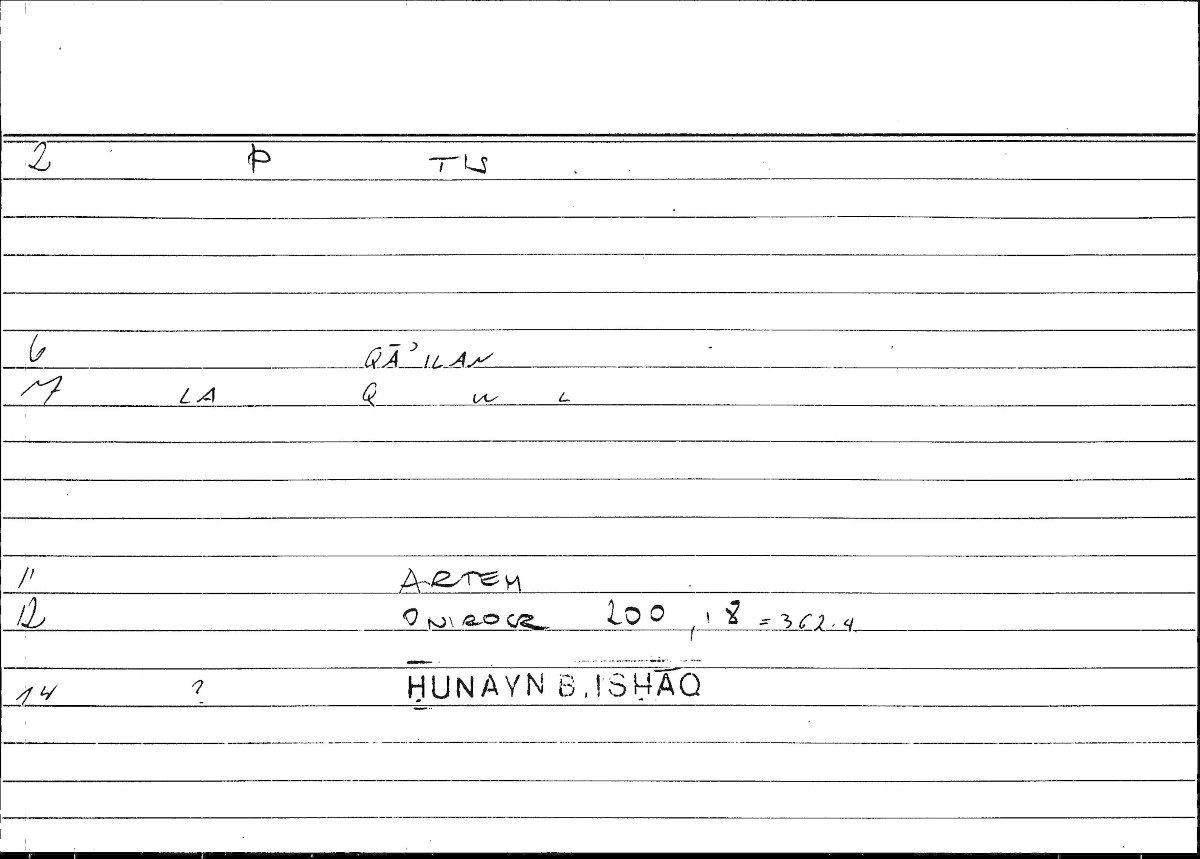 2 P TIS
6 QĀʾILAN
7 LA Q W L
11 ARTEM
12 ONIROCR 200,18 = 362.4
14 ? ḤUNAYN B. ISḤĀQ